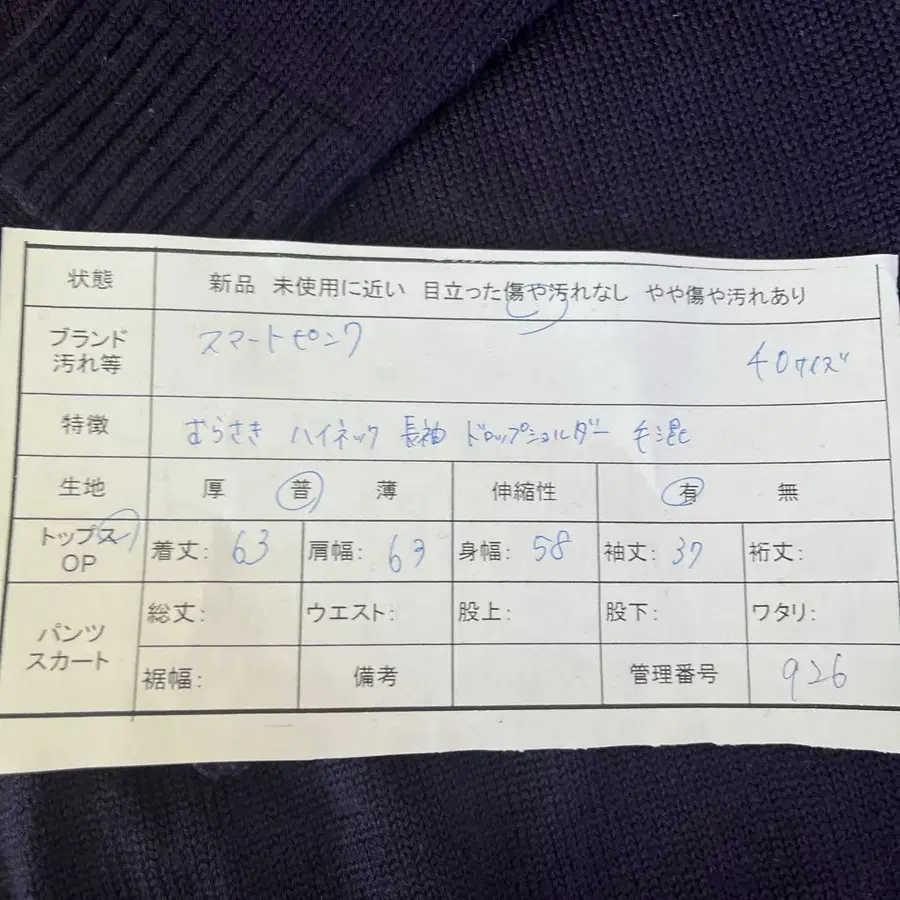 状態 新品 未使用に近い 目立った傷や汚れなし やや傷や汚れあり
ブランド
汚れ等
スマートピンク 40サイズ
特徴 むらさき ハイネック 長袖 ドロップショルダー 毛混
生地 厚 普 薄 伸縮性 有 無
トップス
OP
着丈: 63 肩幅: 63 身幅: 58 袖丈: 37 裄丈:
パンツ
スカート
総丈: ウエスト: 股上: 股下: ワタリ:
裾幅: 備考 管理番号 926